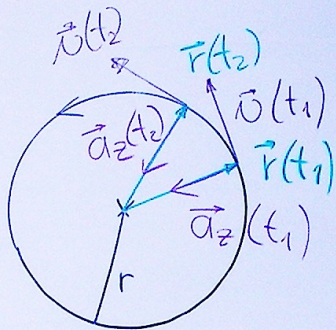 v⃗(t₂)
r⃗(t₂)
v⃗(t₁)
a⃗z(t₂)
r⃗(t₁)
a⃗z(t₁)
r